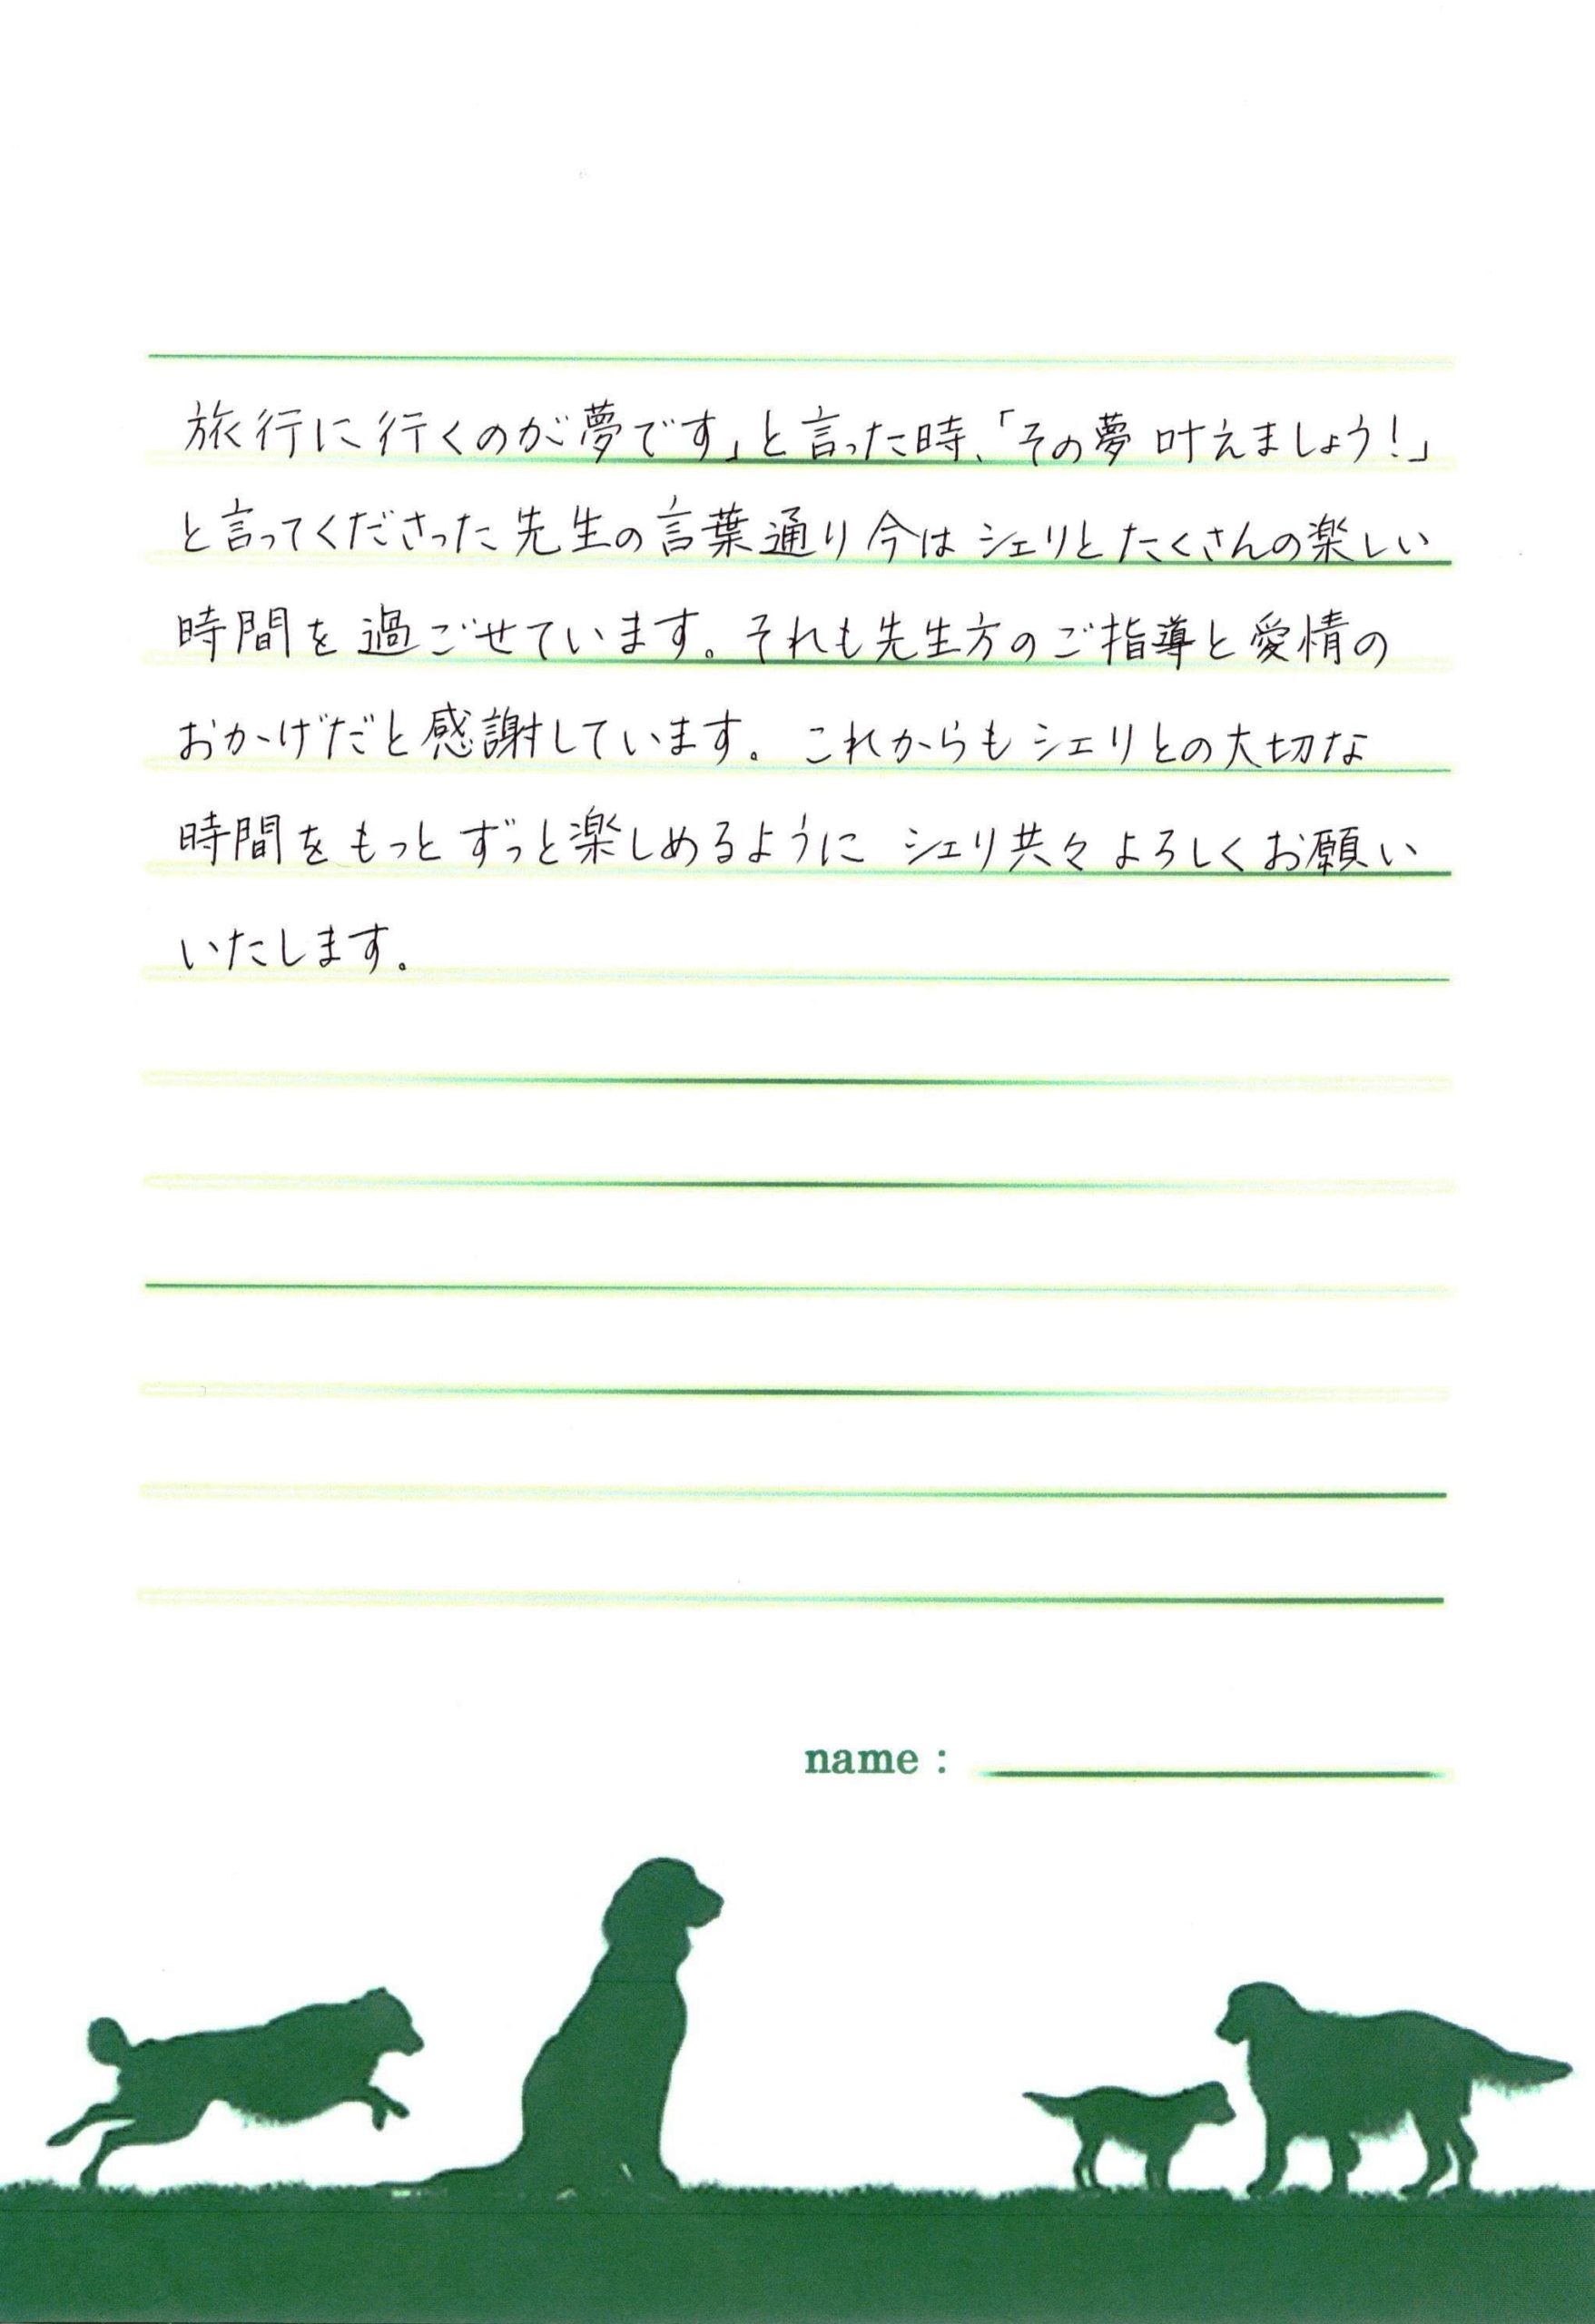 旅行に行くのが夢です」と言った時、「その夢 叶えましょう!」
と言ってくださった先生の言葉通り今は シェリとたくさんの楽しい
時間を過ごせています。それも先生方のご指導と愛情の
おかげだと感謝しています。これからもシェリとの大切な
時間をもっとずっと楽しめるように シェリ共々よろしくお願い
いたします。
name :